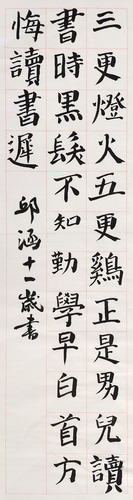 三更燈火五更鷄正是男兒讀
書時黑髮不知勤學早白首方
悔讀書遲
邱涵十一歲書